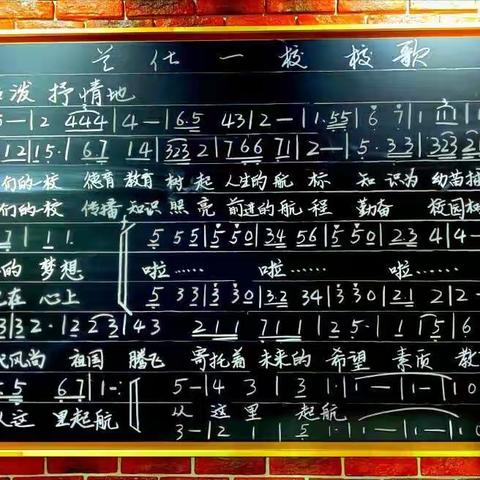 兰化一校校歌
泼 抒情地
5 — | 2 444 | 4 — | 6.5 43 | 2 — | 1.55 | 6 7 | 1
12 | 15. | 67 14 | 323 2 | 766 71 | 2 — | 5. 33 | 323 2
们的一校 德育教育 树起 人生的航 标 知识为 幼苗
们的一校 传播知识 照亮 前进的航 程 勤奋 校园
7 | 1 1. 5 55 | 5 50 | 34 56 | 5 50 | 23 4 | 4 —
的 梦想 啦…… 啦…… 啦……
在 心上 5 33 | 3 30 | 3.2 34 | 3 30 | 2.1 2 | 2 —
3 | 32. | 223 | 43 211 | 711 | 25. | 115 | 6
风尚 祖国 腾飞 寄托着 未来的 希望 素质 教
5.5 67 | 1 — :| 5 — | 4 3 | 3 1. | 1 — | 1 — | 1 0
从这 里起航 从 这里 起航
3 — | 2 1 | 5 1. | 1 — | 1 — | 1 0